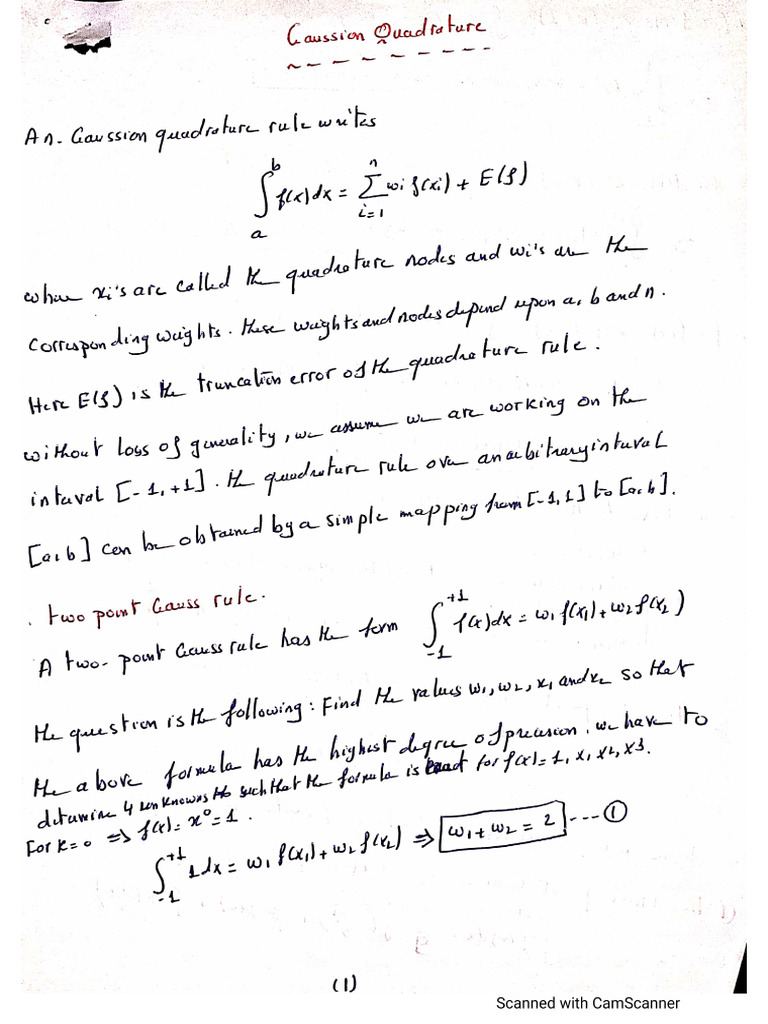 Gaussian Quadrature
A n- Gaussian quadrature rule writes
∫_a^b f(x)dx = ∑_{i=1}^n wi f(xi) + E(f)
where xi's are called the quadrature nodes and wi's are the
corresponding weights. these weights and nodes depend upon a, b and n.
Here E(f) is the truncation error of the quadrature rule.
without loss of generality, we assume we are working on the
interval [-1,+1]. the quadrature rule over an arbitrary interval
[a,b] can be obtained by a simple mapping from [-1,1] to [a,b].
. two point Gauss rule.
A two-point Gauss rule has the form ∫_{-1}^{+1} f(x)dx = w1 f(x1) + w2 f(x2)
the question is the following: Find the values w1, w2, x1 and x2 so that
the above formula has the highest degree of precision. we have to
determine 4 unknowns so such that the formula is exact for f(x)= 1, x, x2, x3.
For k=0 ⇒ f(x)= x⁰=1.
∫_{-1}^{+1} 1dx = w1 f(x1) + w2 f(x2) ⇒ w1 + w2 = 2 ---- ①
(1)
Scanned with CamScanner